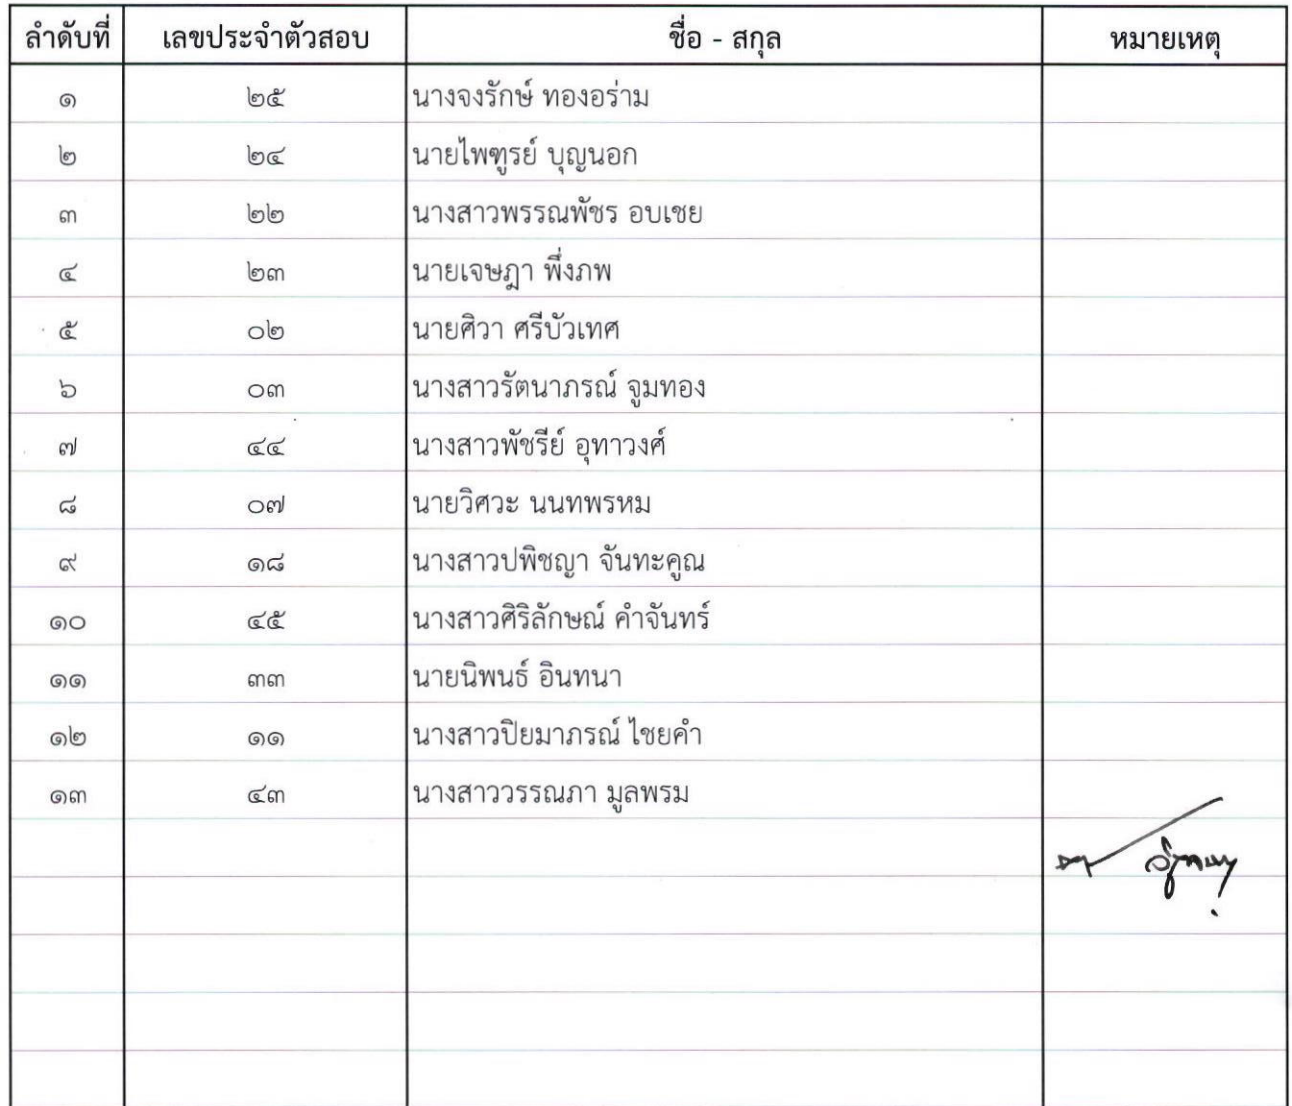 ลำดับที่ เลขประจำตัวสอบ ชื่อ - สกุล หมายเหตุ
๑ ๒๕ นางจงรักษ์ ทองอร่าม
๒ ๒๔ นายไพฑูรย์ บุญนอก
๓ ๒๒ นางสาวพรรณพัชร อบเชย
๔ ๒๓ นายเจษฎา พึ่งภพ
๕ ๐๒ นายศิวา ศรีบัวเทศ
๖ ๐๓ นางสาวรัตนาภรณ์ จูมทอง
๗ ๔๔ นางสาวพัชรีย์ อุทาวงศ์
๘ ๐๗ นายวิศวะ นนทพรหม
๙ ๑๘ นางสาวปพิชญา จันทะคูณ
๑๐ ๔๕ นางสาวศิริลักษณ์ คำจันทร์
๑๑ ๓๓ นายนิพนธ์ อินทนา
๑๒ ๑๑ นางสาวปิยมาภรณ์ ไชยคำ
๑๓ ๔๓ นางสาววรรณภา มูลพรม